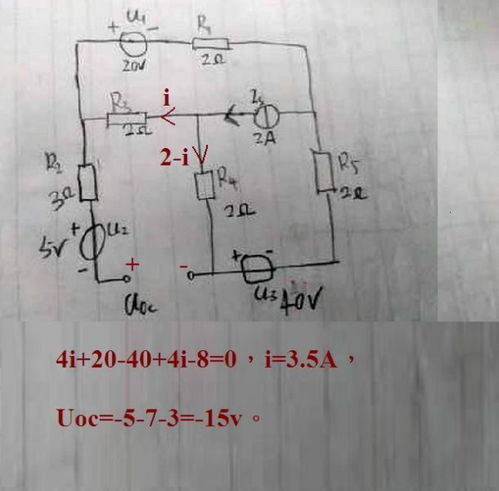 U₁
+ -
20V
R₁
2Ω
R₃
2Ω
i
2A
2-i
R₂
3Ω
R₄
2Ω
R₅
2Ω
+ U₂
5V
-
+
-
Uoc
+ -
U₃ 40V
4i+20-40+4i-8=0，i=3.5A，
Uoc=-5-7-3=-15v。